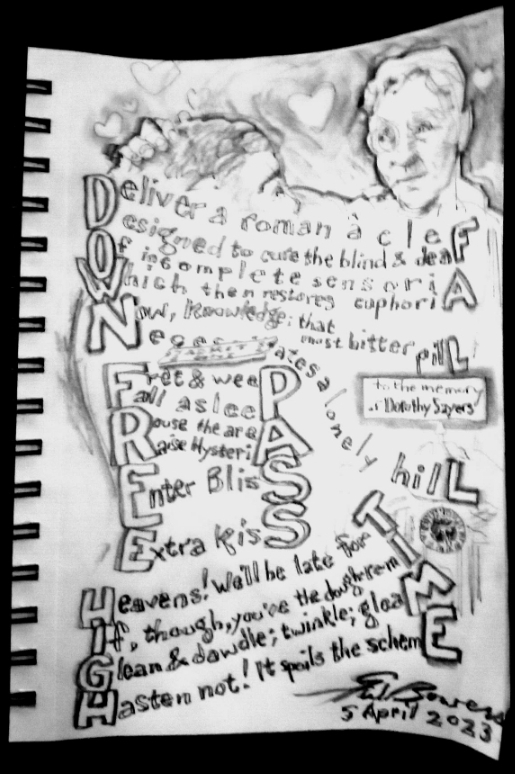 Deliver a roman à cleF
Designed to cure the blind & deaF
Of incomplete sensoriA
Which then restores euphoriA
Now, Knowledge: that most bitter pilL
Neces ates a lonely hilL
to the memory
of Dorothy Sayers
Fret & weeP
Fall asleeP
Rouse the areA
Raise HysteriA
Enter BlisS
Extra KisS
Heavens! We'll be late for T
If, though, you've the dough-re-mI
Glean & dawdle; twinkle; gleaM
Hasten not! It spoils the schemE
5 April 2023